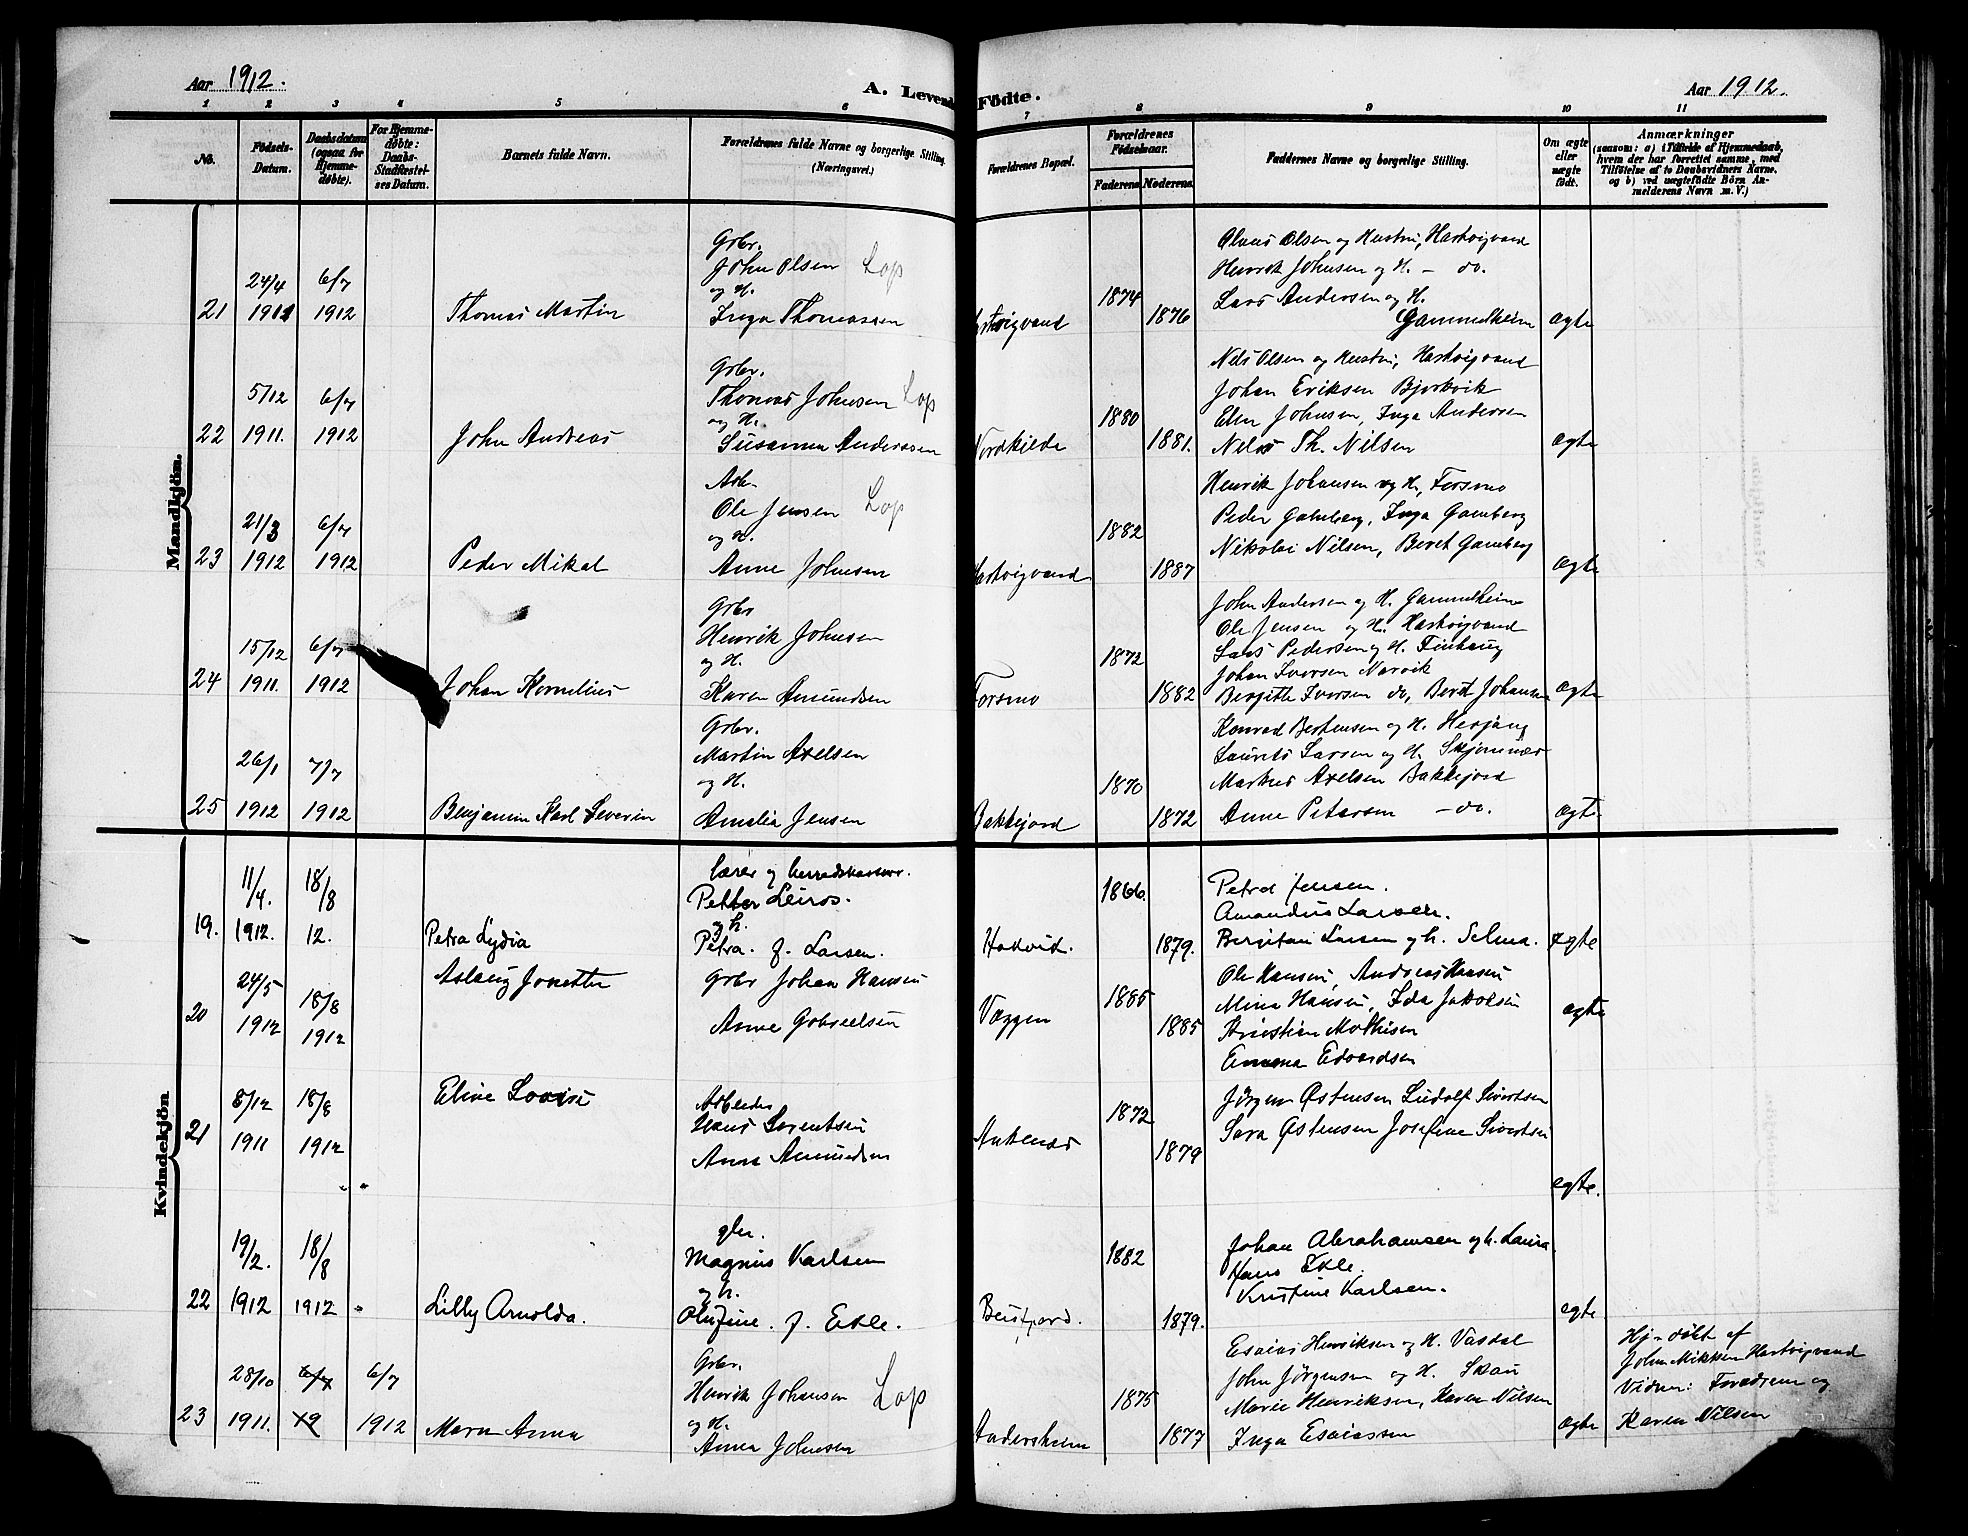 Aar 1912.
A. Levende Födte.
Aar 1912.
1 2 3 4 5 6 7 8 9 10 11
No.
Födsels-Datum.
Daabsdatum (ogsaa for Hjemme-døbte).
For Hjemme-døbte: Daabs-Stadfæstel-ses Datum.
Barnets fulde Navn.
Forældrenes fulde Navne og borgerlige Stilling. (Næringsvei.)
Forældrenes Bopæl.
Forældrenes Födselsaar.
Faderens. Moderens.
Faddernes Navne og borgerlige Stilling.
Om ægte eller uægte födt.
Anmærkninger
(saasom: a) i Tilfælde af Hjemmedaab,
hvem der har forrettet samme, med
Tilföielse af to Daabsvidners Navne,
og b) ved uægtefödte Börn An-
melderens Navn m. V.)
Mandkjön.
21
24/4
1911
6/7
1912
Thomas Martin
Grbr.
John Olsen Lap
og H.
Inga Thomassen
Hartvigvand
1874
1876
Olaus Olsen og Hustru, Hartvigvand
Henrik Johnsen og H. - do.
Lars Andersen og H.
Gammelheim
ægte
22
5/12
1911.
6/7
1912
John Andreas
Grbr.
Thomas Johnsen Lap
og H.
Susanna Anderssen
Nordkilde
1880
1881.
Nels Olsen og Hustru, Hartvigvand
Johan Eriksen Bjerkvik
Elen Johnsen, Inga Andersen
Nels Th. Nilsen
ægte
23
21/3
1912
6/7
1912
Peder Mikal
Arb.
Ole Jensen Lap
og H.
Anne Johnsen
Hartvigvand
1882
1887
Henrik Johansen og H., Forsmo
Peder Gamberg, Inga Gamberg
Nikolai Nilsen, Beret Gamberg
ægte
24
15/12
1911.
6/7
1912
Johan Kornelius
Grbr
Henrik Johnsen
og H.
Karen Amundsen
Forsmo
1872
1882
John Andersen og H. Gammelheim
Ole Jensen og H. Hartvigvand
Lars Pedersen og H. Finhaug
Johan Iversen Narvik
Bergitte Iversen do, Beret Johansen
ægte
25
26/1
1912
7/7
1912
Benjamin Karl Severin
Grbr.
Martin Axelsen
og H.
Amalia Jensen
Bakkejord
1870
1872
Konrad Bertensen og H. Herjang
Laurits Larsen og H. Skjomnes
Markus Axelsen Bakkejord
Anne Petersen - do.
ægte
Kvindekjön
19.
11/4.
1912.
18/8
12.
Petra Lydia
lærer og herredskasserer.
Petter Leiros.
og h.
Petra. f. Larsen.
Haakvik.
1866.
1879.
Petra Jensen.
Amandus Larsen.
Bergitan Larsen og h. Selma.
ægte
20
24/5
1912
18/8
1912
Aslaug Jonette
Grbr Johan Hansen
Anne Gabrielsen
Væggen
1885
1885
Ole Hansen, Andreas Hansen
Mina Hansen, Ida Jakobsen
Kristian Mathisen
Emma Edvardsen
ægte
21
8/12
1911
18/8
1912
Eline Lovise
Arbeider
Hans Lorentsen
Anna Amundsen
Ankenes
1872
1879
Jörgen Østensen Ludolf Sivertsen
Sara Østensen Josefine Sivertsen
ægte.
22
19/2.
1912
18/8
1912
Lilly Arnolda.
gbr.
Magnus Karlsen
og h.
Olufine. f. Elle.
Beisfjord.
1882
1879.
Johan Abrahamsen og h. Laura.
Hans Elle.
Kristine Karlsen.
ægte.
23
28/10
1911.
6/7
6/7
1912
Maren Anna
Grbr.
Henrik Johansen Lap
og H.
Anna Johnsen
Andersheim
1875
1877
Esaias Henriksen og H. Vasdal
John Jörgensen og H. Skau
Marie Henriksen, Karen Nilsen
Inga Esaiassen
ægte
Hj-döbt af
John Mikkelsen Hartvigvand
Vidner: Forældrene og
Karen Nilsen